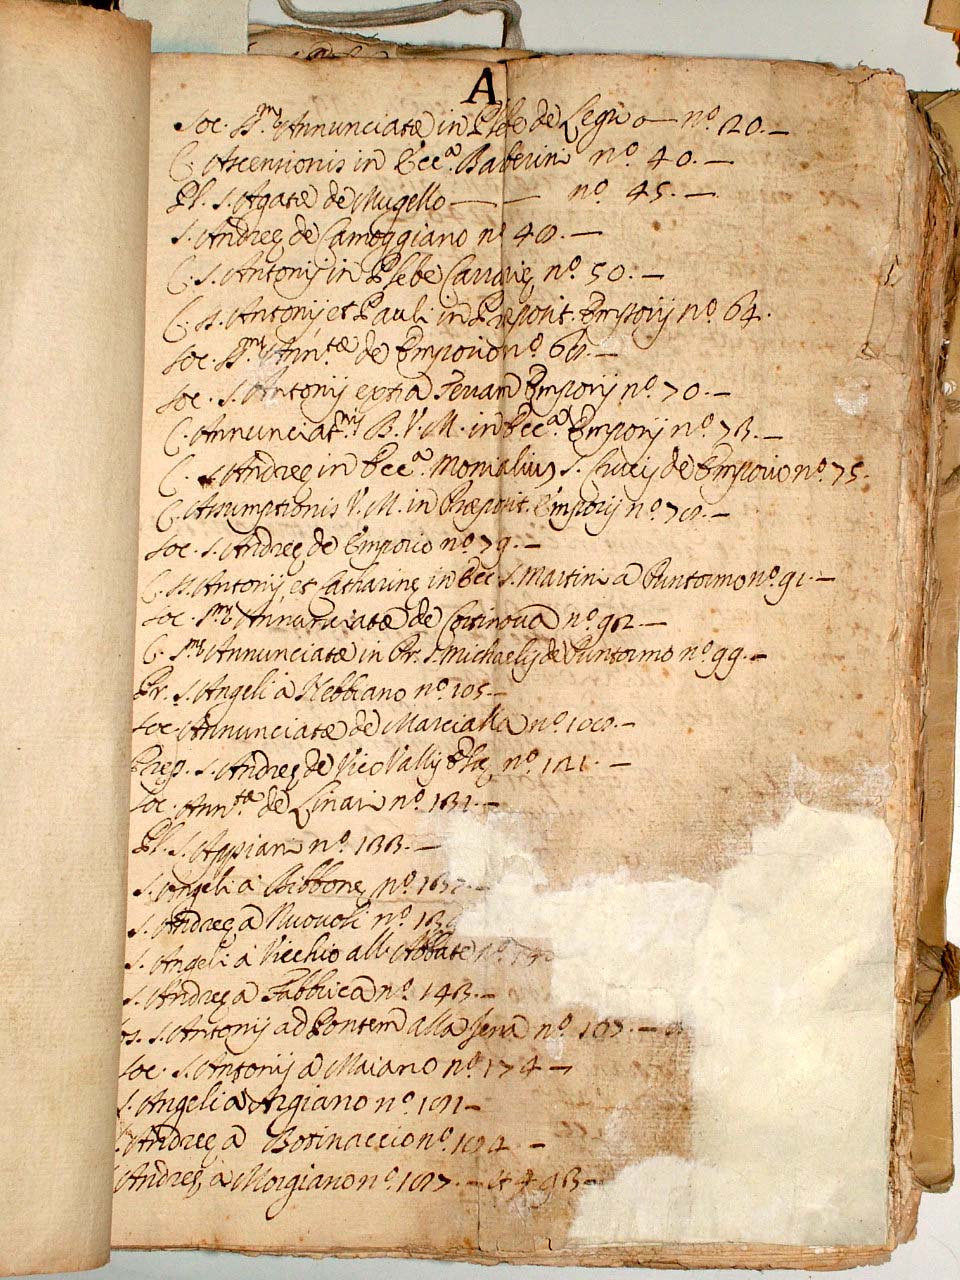 A
Soc. S.mę Annunciatæ in Plebe de n.o 20.—
C. Ascensionis in Ecc.a Barberini n.o 40.—
Pl. S. Agatæ de Mugello — — n.o 45.—
S. Andreę de Camoggiano n.o
C. S. Antonij in Plebe n.o 50.—
C. SS. Antonij et Pauli in Præposit. Emporij n.o 64.
Soc. S.mę Ann.tæ de Emporio n.o
Soc. S. Antonij extra Terram Emporij n.o 70.—
C. Annunciat.nis B. V. M. in Ecc.a Emporij n.o 73.—
C. S. Andreę in Ecc.a Monialium S. Crucis de Emporio n.o 75.
C. Assumptionis V. M. in Præposit. Emporij n.o
Soc. S. Andreę de Emporio n.o 79.—
C. SS. Antonij et Catharinę in Ecc. S. Martini a Puntormo n.o 91.—
Soc. S.mę Annunciatæ de n.o
C. S.mę Annunciatæ in Pr. S. Michaelis de Puntormo n.o 99.—
Pr. S. Angeli a Nebbiano n.o 105.—
Soc. Annunciatæ de Marcialla n.o
Prep. S. Andreę de Vico Vallis Elsę n.o 121.—
Soc. Ann.ta de Linari n.o 131.—
Pl. S. Appiani n.o 133.—
S. Angeli a Bibbone n.o
S. Andreę a Nuovoli n.o
S. Angeli a Vicchio all' Abbate n.o
S. Andreę a Fabbrica n.o 143.—
S. Antonij ad Pontem alla n.o
Soc. S. Antonij a Maiano n.o 174—
S. Angeli a Argiano n.o
S. Andreę a Botinaccio n.o
S. Andreę a Morgiano n.o — et 493—